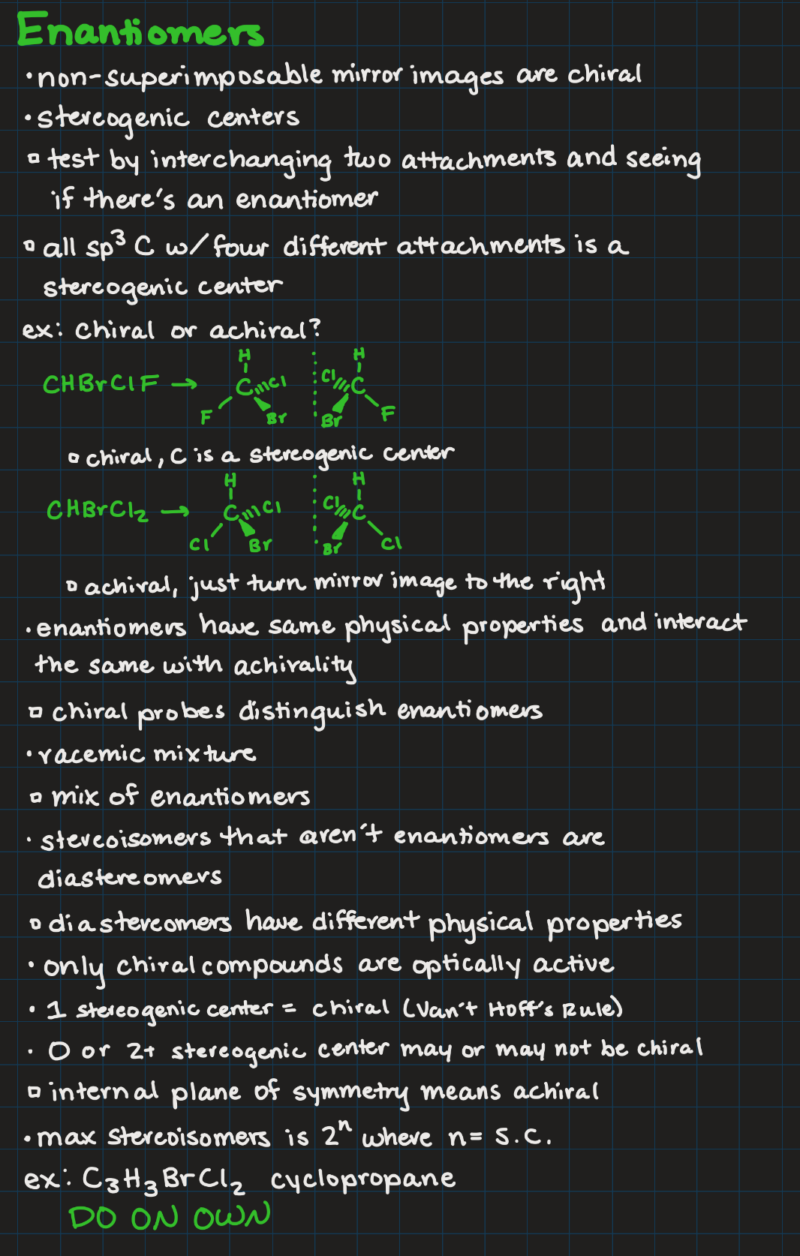 Enantiomers
• non-superimposable mirror images are chiral
• stereogenic centers
▫ test by interchanging two attachments and seeing
if there's an enantiomer
▫ all sp³ C w/ four different attachments is a
stereogenic center
ex: chiral or achiral?
H H
CHBrClF → C Cl Cl C
F Br Br F
▫ chiral, C is a stereogenic center
H H
CHBrCl₂ → C Cl Cl C
Cl Br Br Cl
▫ achiral, just turn mirror image to the right
• enantiomers have same physical properties and interact
the same with achirality
▫ chiral probes distinguish enantiomers
• racemic mixture
▫ mix of enantiomers
• stereoisomers that aren't enantiomers are
diastereomers
▫ diastereomers have different physical properties
• only chiral compounds are optically active
• 1 stereogenic center = chiral (Van't Hoff's Rule)
• 0 or 2+ stereogenic center may or may not be chiral
▫ internal plane of symmetry means achiral
• max stereoisomers is 2ⁿ where n = S.C.
ex: C₃H₃BrCl₂ cyclopropane
DO ON OWN